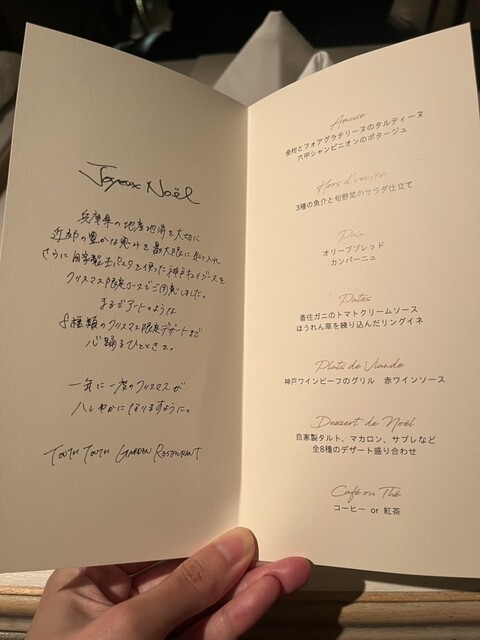 Joyeux Noël
兵庫県の地産地消を大切に
近郊の豊かな恵みを最大限に取り入れ
さらに自家製生パスタを使った神戸キュイジーヌを
クリスマス限定コースでご用意しました。
まるでアートのような
8種類のクリスマス限定デザートまで
心踊るひとときを。
一年に一度のクリスマスが
ハレやかになりますように。
TOOTH TOOTH GARDEN RESTAURANT
Amuse
金柑とフォアグラテリーヌのタルティーヌ
六甲シャンピニオンのポタージュ
Hors d'œuvre
3種の魚介と旬野菜のサラダ仕立て
Pain
オリーブブレッド
カンパーニュ
Pates
香住ガニのトマトクリームソース
ほうれん草を練り込んだリングイネ
Plats de Viande
神戸ワインビーフのグリル 赤ワインソース
Dessert de Noël
自家製タルト、マカロン、サブレなど
全8種のデザート盛り合わせ
Café ou Thé
コーヒー or 紅茶